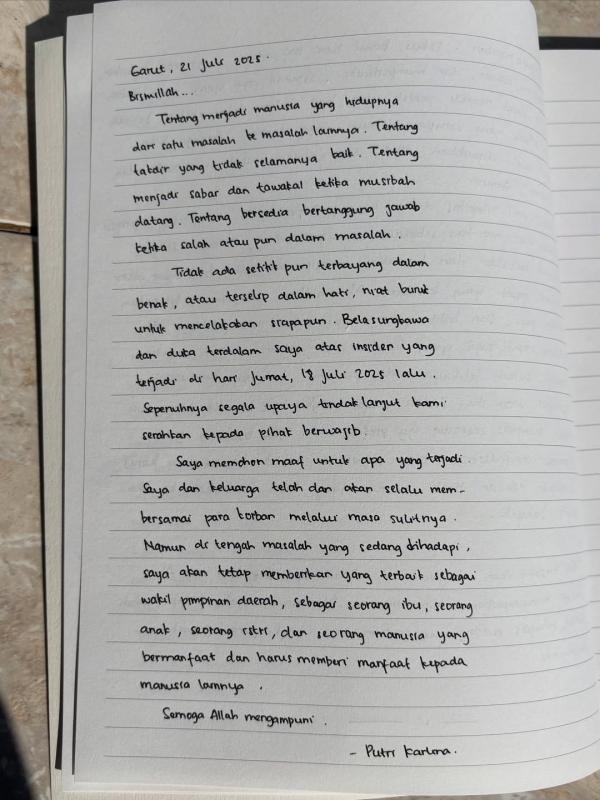 Garut, 21 Juli 2025.
Bismillah...
Tentang menjadi manusia yang hidupnya
dari satu masalah ke masalah lainnya. Tentang
takdir yang tidak selamanya baik. Tentang
menjadi sabar dan tawakal ketika musibah
datang. Tentang bersedia bertanggung jawab
ketika salah ataupun dalam masalah.
Tidak ada setitik pun terbayang dalam
benak, atau terselip dalam hati, niat buruk
untuk mencelakakan siapapun. Belasungkawa
dan duka terdalam saya atas insiden yang
terjadi di hari Jumat, 18 Juli 2025 lalu.
Sepenuhnya segala upaya tindak lanjut kami
serahkan kepada pihak berwajib.
Saya memohon maaf untuk apa yang terjadi.
Saya dan keluarga telah dan akan selalu mem-
bersamai para korban melalui masa sulitnya.
Namun di tengah masalah yang sedang dihadapi,
saya akan tetap memberikan yang terbaik sebagai
wakil pimpinan daerah, sebagai seorang ibu, seorang
anak, seorang istri, dan seorang manusia yang
bermanfaat dan harus memberi manfaat kepada
manusia lainnya.
Semoga Allah mengampuni.
- Putri Karlina.